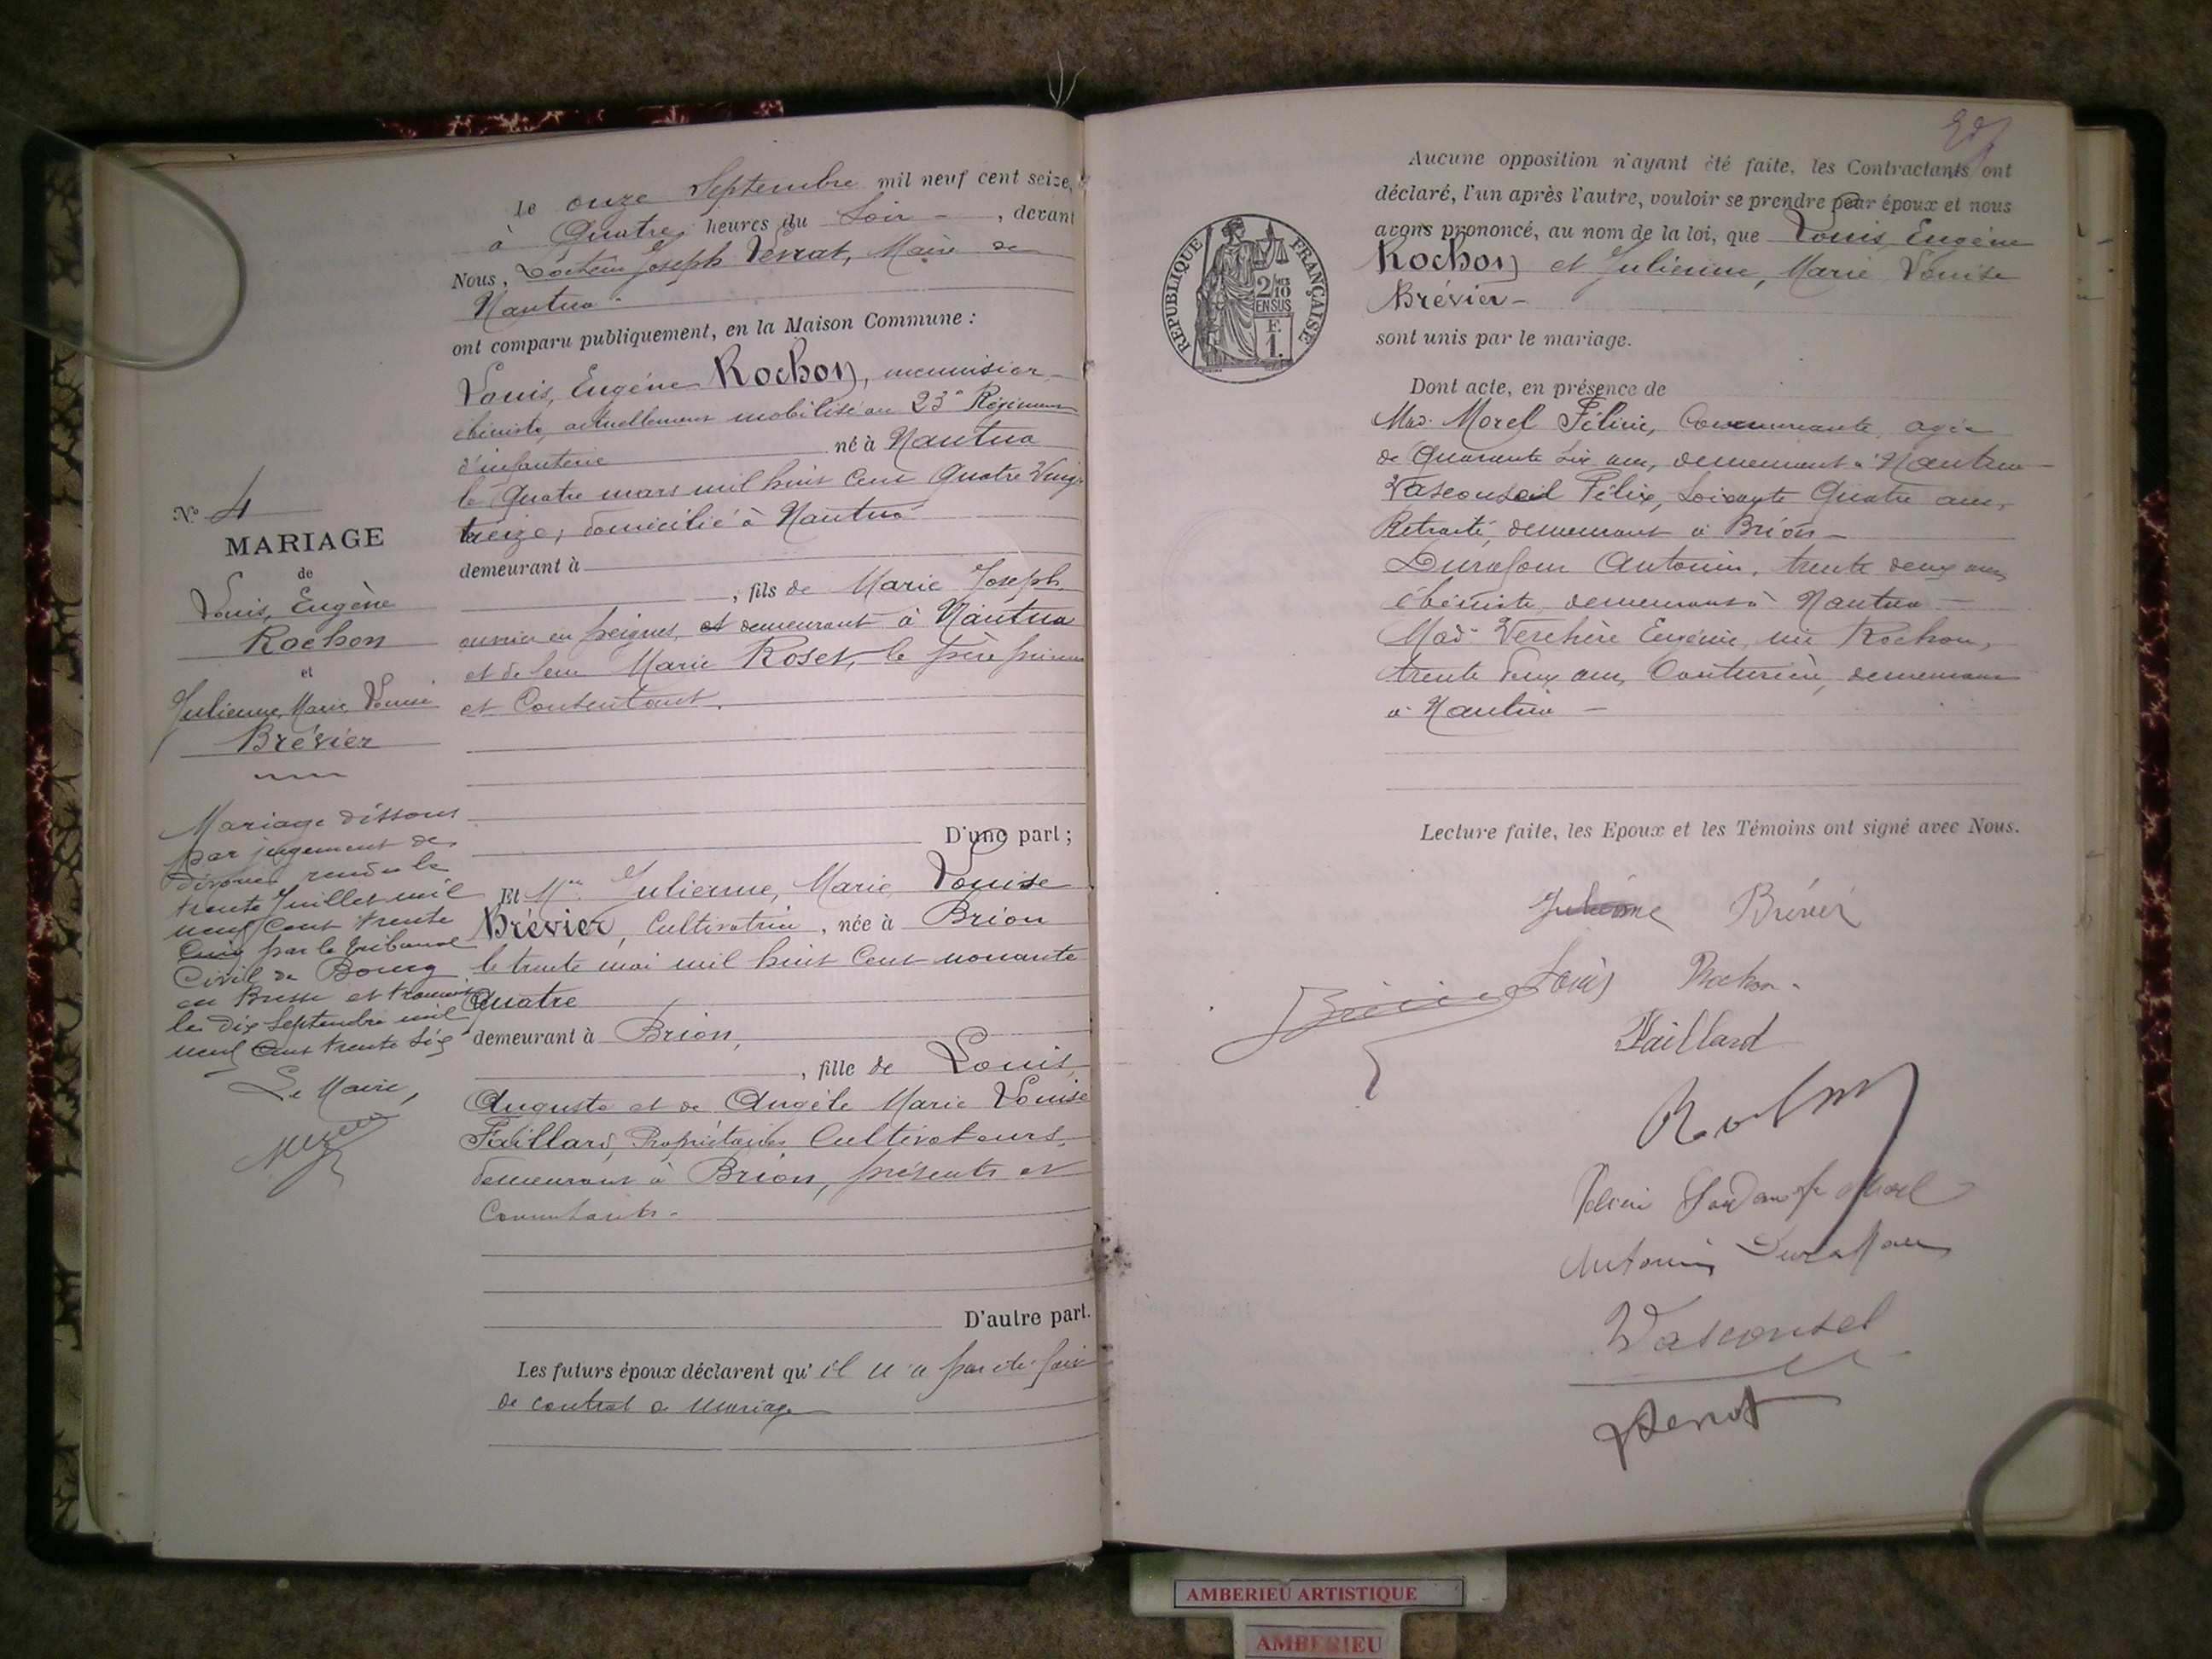 Le onze Septembre mil neuf cent seize,
à Quatre heures du Soir - , devant
Nous, Docteur Joseph Verrat, Maire de
Nantua -
ont comparu publiquement, en la Maison Commune :
Louis, Eugène Rochon, menuisier
ébéniste, actuellement mobilisé au 23e Régiment
d'infanterie né à Nantua
le Quatre mars mil huit Cent Quatre Vingt
treize, domicilié à Nantua
demeurant à
, fils de Marie Joseph
ouvrier en peignes, et demeurant à Nantua
et de feue Marie Roset, le père présent
et Consentant.
D'une part ;
Et Mlle Julienne, Marie Louise
Brévier, Cultivatrice, née à Brion
le trente mai mil huit Cent nonante
Quatre
demeurant à Brion,
, fille de Louis,
Auguste et de Angèle Marie Louise
Faillard, Propriétaires Cultivateurs,
demeurant à Brion, présents et
Consentants -
D'autre part.
Les futurs époux déclarent qu'il n'a pas été fait
de contrat de mariage
N° 4
MARIAGE
de
Louis, Eugène
Rochon
et
Julienne, Marie Louise
Brévier
Mariage dissous
par jugement de
divorce rendu le
trente Juillet mil
neuf Cent trente
Cinq par le tribunal
Civil de Bourg
en Bresse et transcrit
le dix Septembre mil
neuf Cent trente Six
Le Maire,
Aucune opposition n'ayant été faite, les Contractants ont
déclaré, l'un après l'autre, vouloir se prendre pour époux et nous
avons prononcé, au nom de la loi, que Louis, Eugène
Rochon et Julienne, Marie Louise
Brévier -
sont unis par le mariage.
Dont acte, en présence de
Mad. Morel Féline, Commerçante, agée
de Quarante Six ans, demeurant à Nantua -
Vasconseil Félix, Soixante Quatre ans,
Retraité, demeurant à Brion -
Durafour Antonin, trente deux ans,
ébéniste, demeurant à Nantua -
Mad. Verchère Eugénie, née Rochon,
trente deux ans, Couturière, demeurant
à Nantua -
Lecture faite, les Epoux et les Témoins ont signé avec Nous.
Julienne Brévier
Brévier Louis Rochon.
Faillard
Morel
Antonin Durafour
Vasconsel
RÉPUBLIQUE FRANÇAISE
2/10 MES
EN SUS
F.
1.
AMBERIEU ARTISTIQUE
AMBERIEU